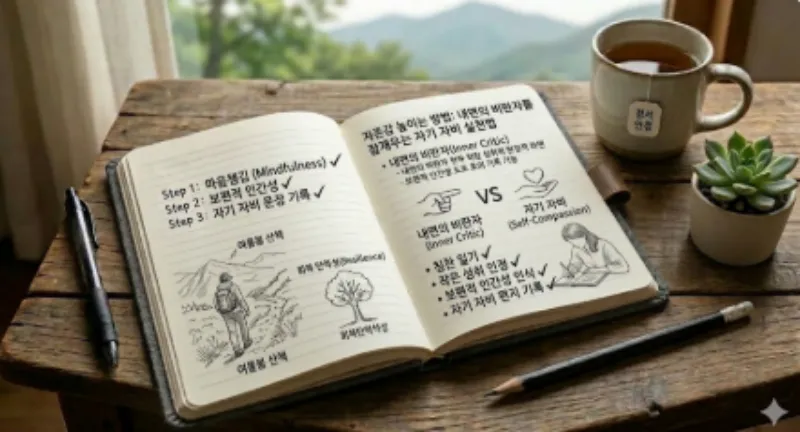 Step 1: 마음챙김 (Mindfulness) ✓
Step 2: 보편적 인간성 ✓
Step 3: 자기 자비 문장 기록 ✓
여름봄 산책
회복 탄력성(Resilience)
여름봄 산책
회복탄력성
자존감 높이는 방법: 내면의 비판자를
잠재우는 자기 자비 실천법
• 내면의 비판자(Inner Critic)
- 내면의 비판자
VS
내면의 비판자
(Inner Critic)
자기 자비
(Self-Compassion)
• 칭찬 일기 ✓
• 작은 성취 인정 ✓
• 보편적 인간성 인식 ✓
• 자기 자비 편지 기록 ✓